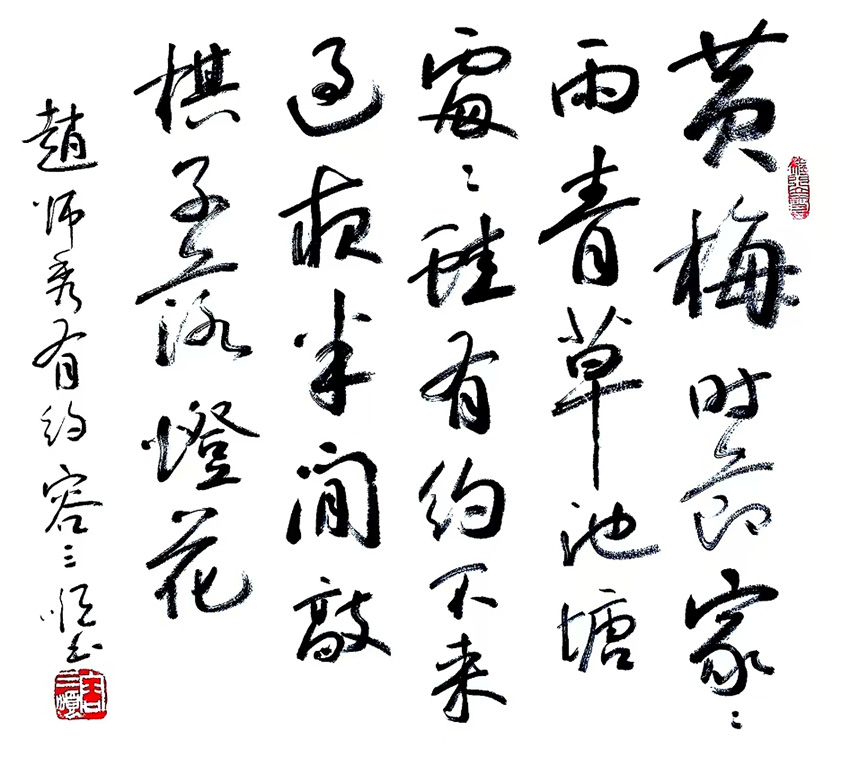 黄梅时节家〻
雨青草池塘
處〻蛙有约不来
过夜半閒敲
棋子落燈花
趙师秀有约 容三书